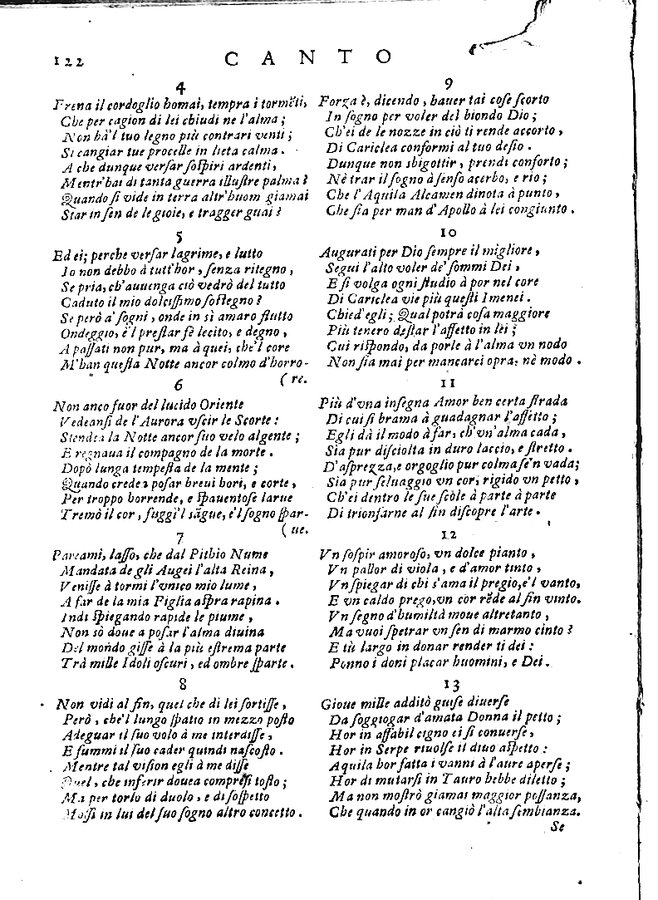 122 CANTO
4
Frena il cordoglio homai, tempra i tormẽti,
Che per cagion di lei chiudi ne l'alma;
Non hà 'l tuo legno più contrari venti;
Si cangiar tue procelle in lieta calma.
A che dunque versar sospiri ardenti,
Mentr' hai di tanta guerra illustre palma?
Quando si vide in terra altr'huom giamai
Star in sen de le gioie, e tragger guai?
5
Ed ei; perche versar lagrime, e lutto
Io non debbo à tutt'hor, senza ritegno,
Se pria, ch'auuenga ciò vedrò del tutto
Caduto il mio dolcissimo sostegno?
Se però a' sogni, onde in sì amaro flutto
Ondeggio, è'l prestar fè lecito, e degno,
A passati non pur, ma à quei, che'l core
M'han questa Notte ancor colmo d'horro-
(re.
6
Non anco fuor del lucido Oriente
Vedeansi de l'Aurora vscir le Scorte:
Stendea la Notte ancor suo velo algente;
E regnaua il compagno de la morte.
Dopò lunga tempesta de la mente;
Quando credea posar breui hori, e corte,
Per troppo horrende, e spauentose larue
Tremò il cor, fuggì'l sãgue, e'l sogno spar-
(ue.
7
Pareami, lasso, che dal Pithio Nume
Mandata de gli Augei l'alta Reina,
Venisse à tormi l'vnico mio lume,
A far de la mia Figlia aspra rapina.
Indi spiegando rapide le piume,
Non sò doue a posar l'alma diuina
Del mondo gisse à la più estrema parte
Trà mille Idoli oscuri, ed ombre sparte.
8
Non vidi al fin, quel che di lei sortisse,
Però, che'l lungo spatio in mezzo posto
Adeguar il suo volo à me interdisse,
E fummi il suo cader quindi nascosto.
Mentre tal vision egli à me disse
Quel, che inferir douea compresi tosto;
Ma per torlo di duolo, e di sospetto
Mossi in lui del suo sogno altro concetto.
9
Forza è, dicendo, hauer tai cose scorto
In sogno per voler del biondo Dio;
Ch'ei de le nozze in ciò ti rende accorto,
Di Cariclea conformi al tuo desio.
Dunque non sbigottir, prendi conforto;
Nè trar il sogno à senso acerbo, e rio;
Che l'Aquila Alcamen dinota à punto,
Che fia per man d'Apollo à lei congiunto.
10
Augurati per Dio sempre il migliore,
Segui l'alto voler de' sommi Dei,
E si volga ogni studio à por nel core
Di Cariclea vie più questi Imenei.
Chied'egli; Qual potrà cosa maggiore
Più tenero destar l'affetto in lei;
Cui rispondo, da porle à l'alma vn nodo
Non fia mai per mancarci opra, nè modo.
11
Più d'vna insegna Amor ben certa strada
Di cui si brama à guadagnar l'affetto;
Egli dà il modo à far, ch'vn'alma cada,
Sia pur disciolta in duro laccio, e stretto.
D'asprezza, e orgoglio pur colma se'n vada;
Sia pur seluaggio vn cor, rigido vn petto,
Ch'ei dentro le sue scòle à parte à parte
Di trionfarne al fin discopre l'arte.
12
Vn sospir amoroso, vn dolce pianto,
Vn pallor di viola, e d'amor tinto,
Vn spiegar di chi s'ama il pregio, e'l vanto,
E vn caldo prego, vn cor rẽde al fin vinto.
Vn segno d'humiltà moue altretanto,
Ma vuoi spetrar vn sen di marmo cinto?
E tù largo in donar render ti dei:
Ponno i doni placar huomini, e Dei.
13
Gioue mille additò guise diuerse
Da soggiogar d'amata Donna il petto;
Hor in affabil cigno ei si conuerse,
Hor in Serpe riuolse il diuo aspetto:
Aquila hor fatta i vanni à l'aure aperse;
Hor di mutarsi in Tauro hebbe diletto;
Ma non mostrò giamai maggior possanza,
Che quando in or cangiò l'alta sembianza.
Se